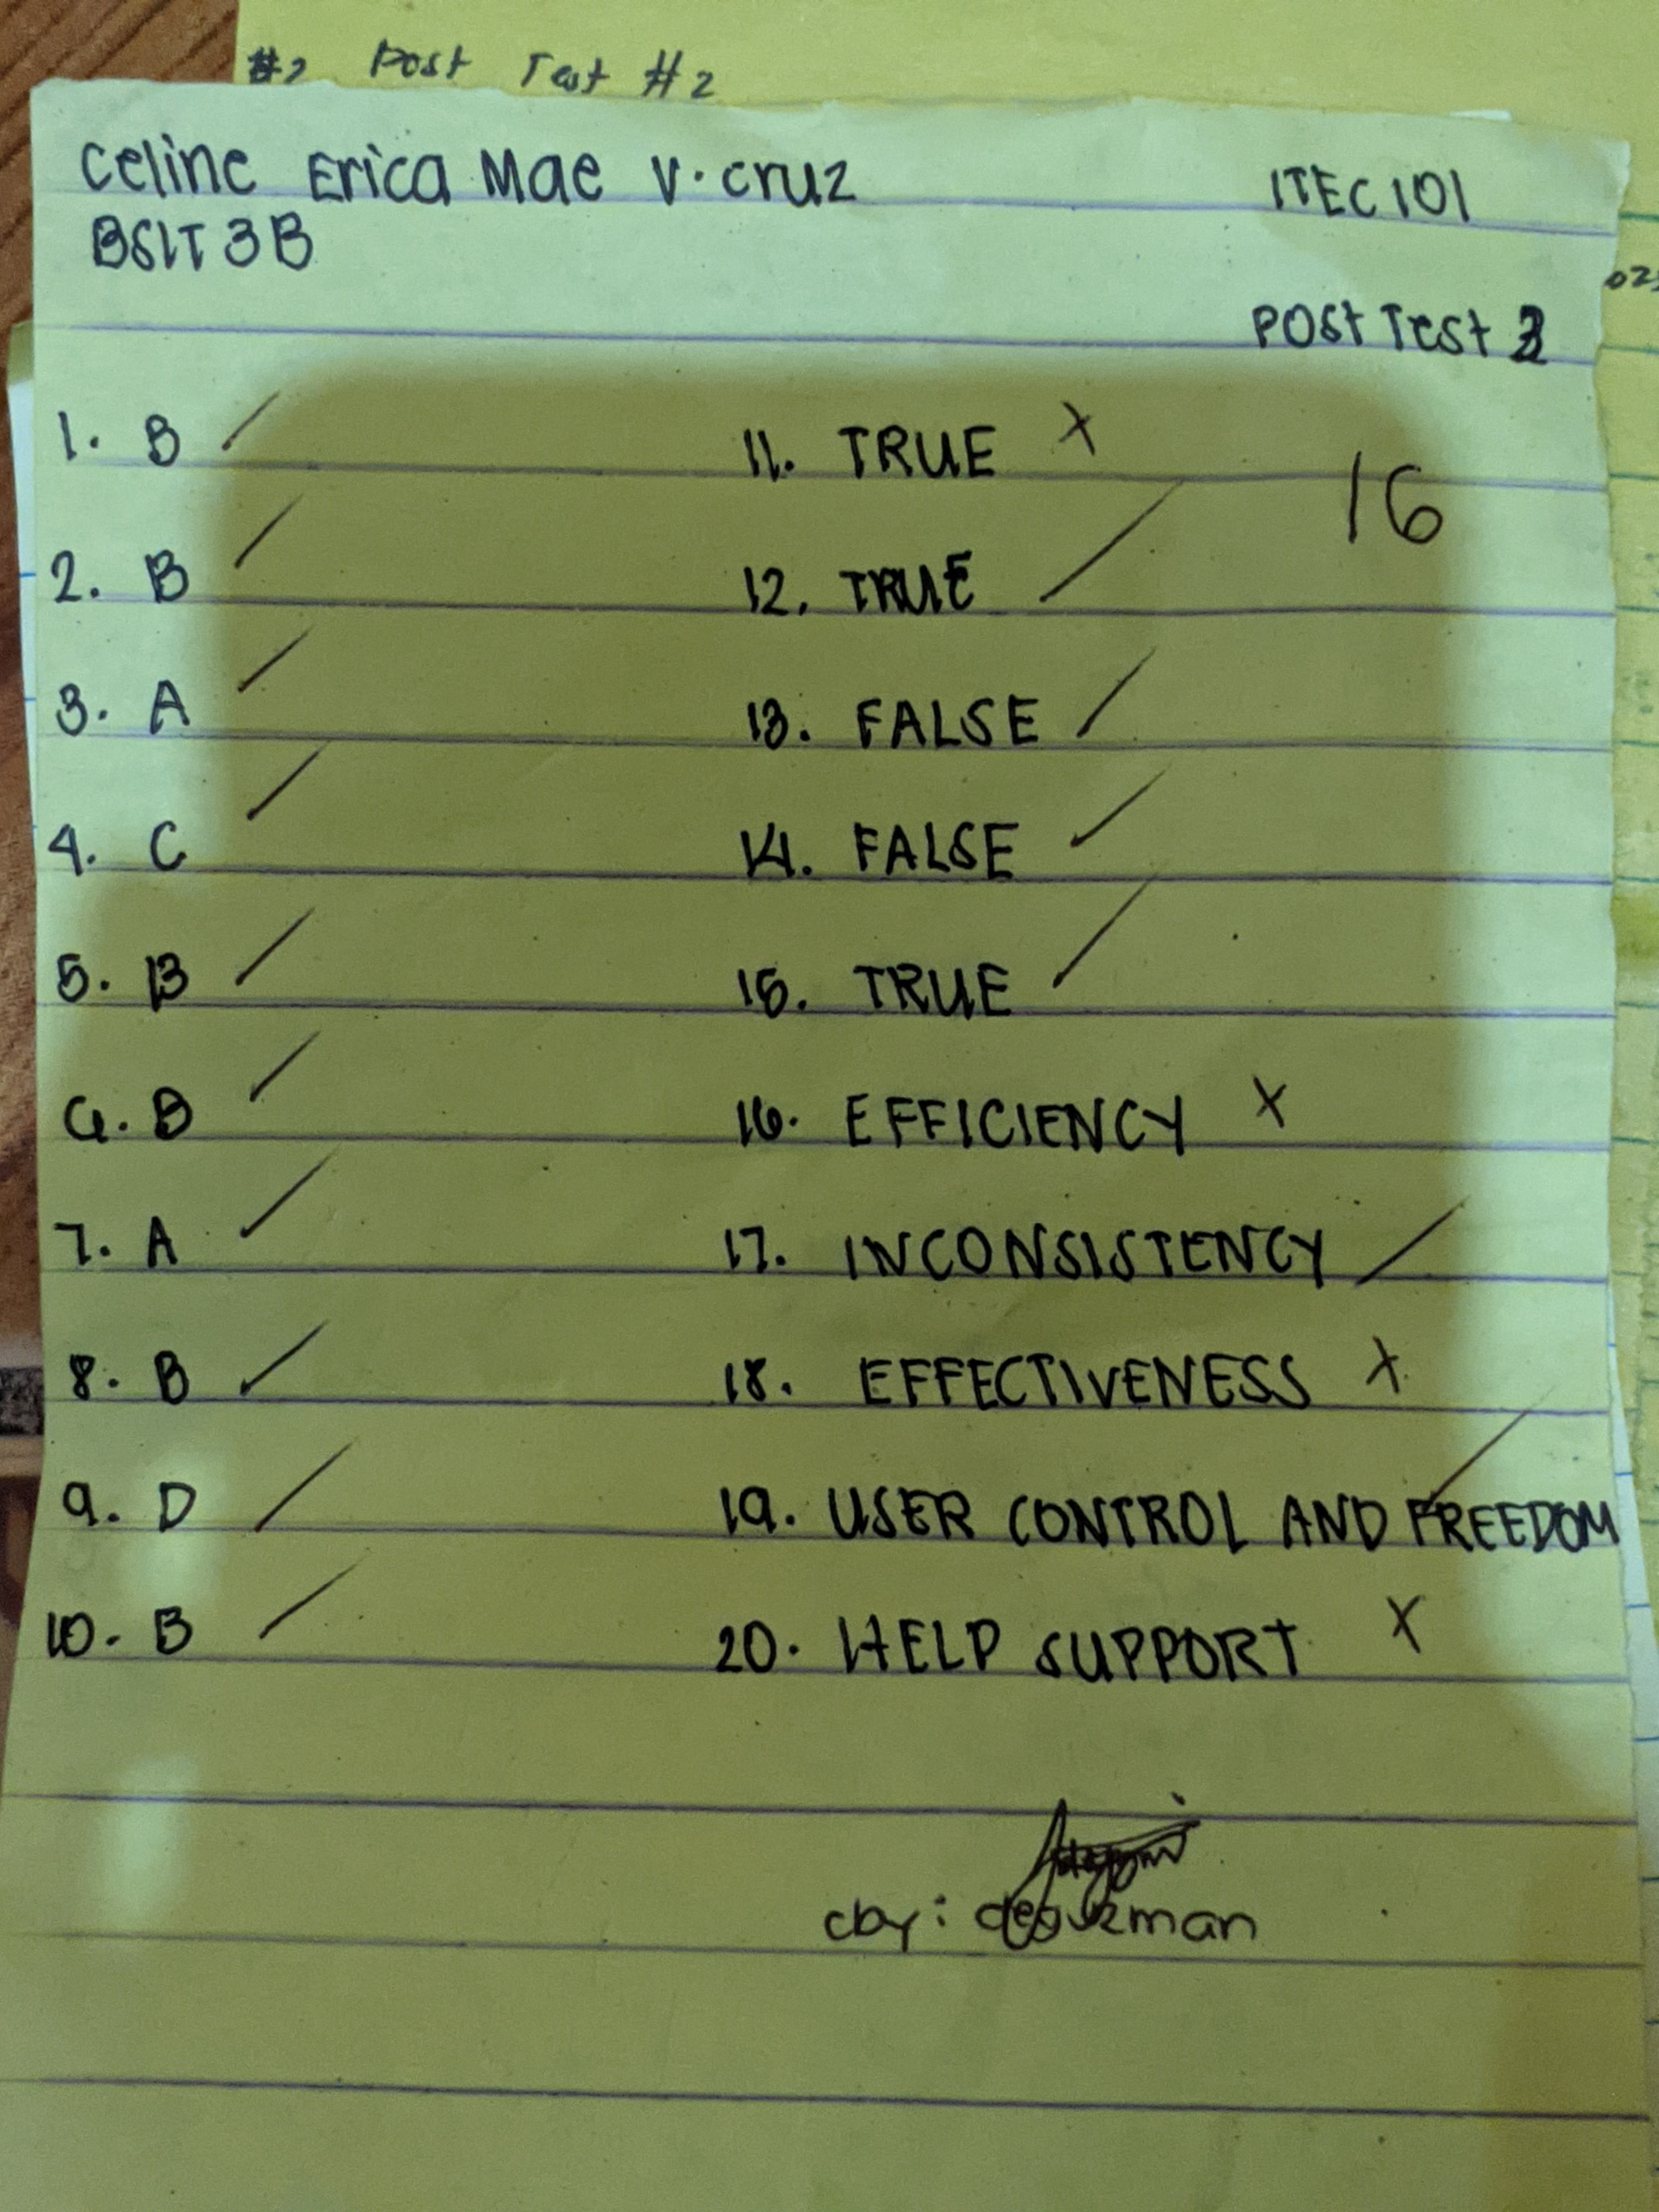 #2 Post Test #2
Celine Erica Mae V. Cruz
ITEC 101
BSIT 3B
Post Test
1. B
2. B
3. A
4. C
5. B
6. B
7. A
8. B
9. D
10. B
11. TRUE X
12. TRUE
13. FALSE
14. FALSE
15. TRUE
16. EFFICIENCY X
17. INCONSISTENCY
18. EFFECTIVENESS X
19. USER CONTROL AND FREEDOM
20. HELP SUPPORT X
16
cby: deguzman